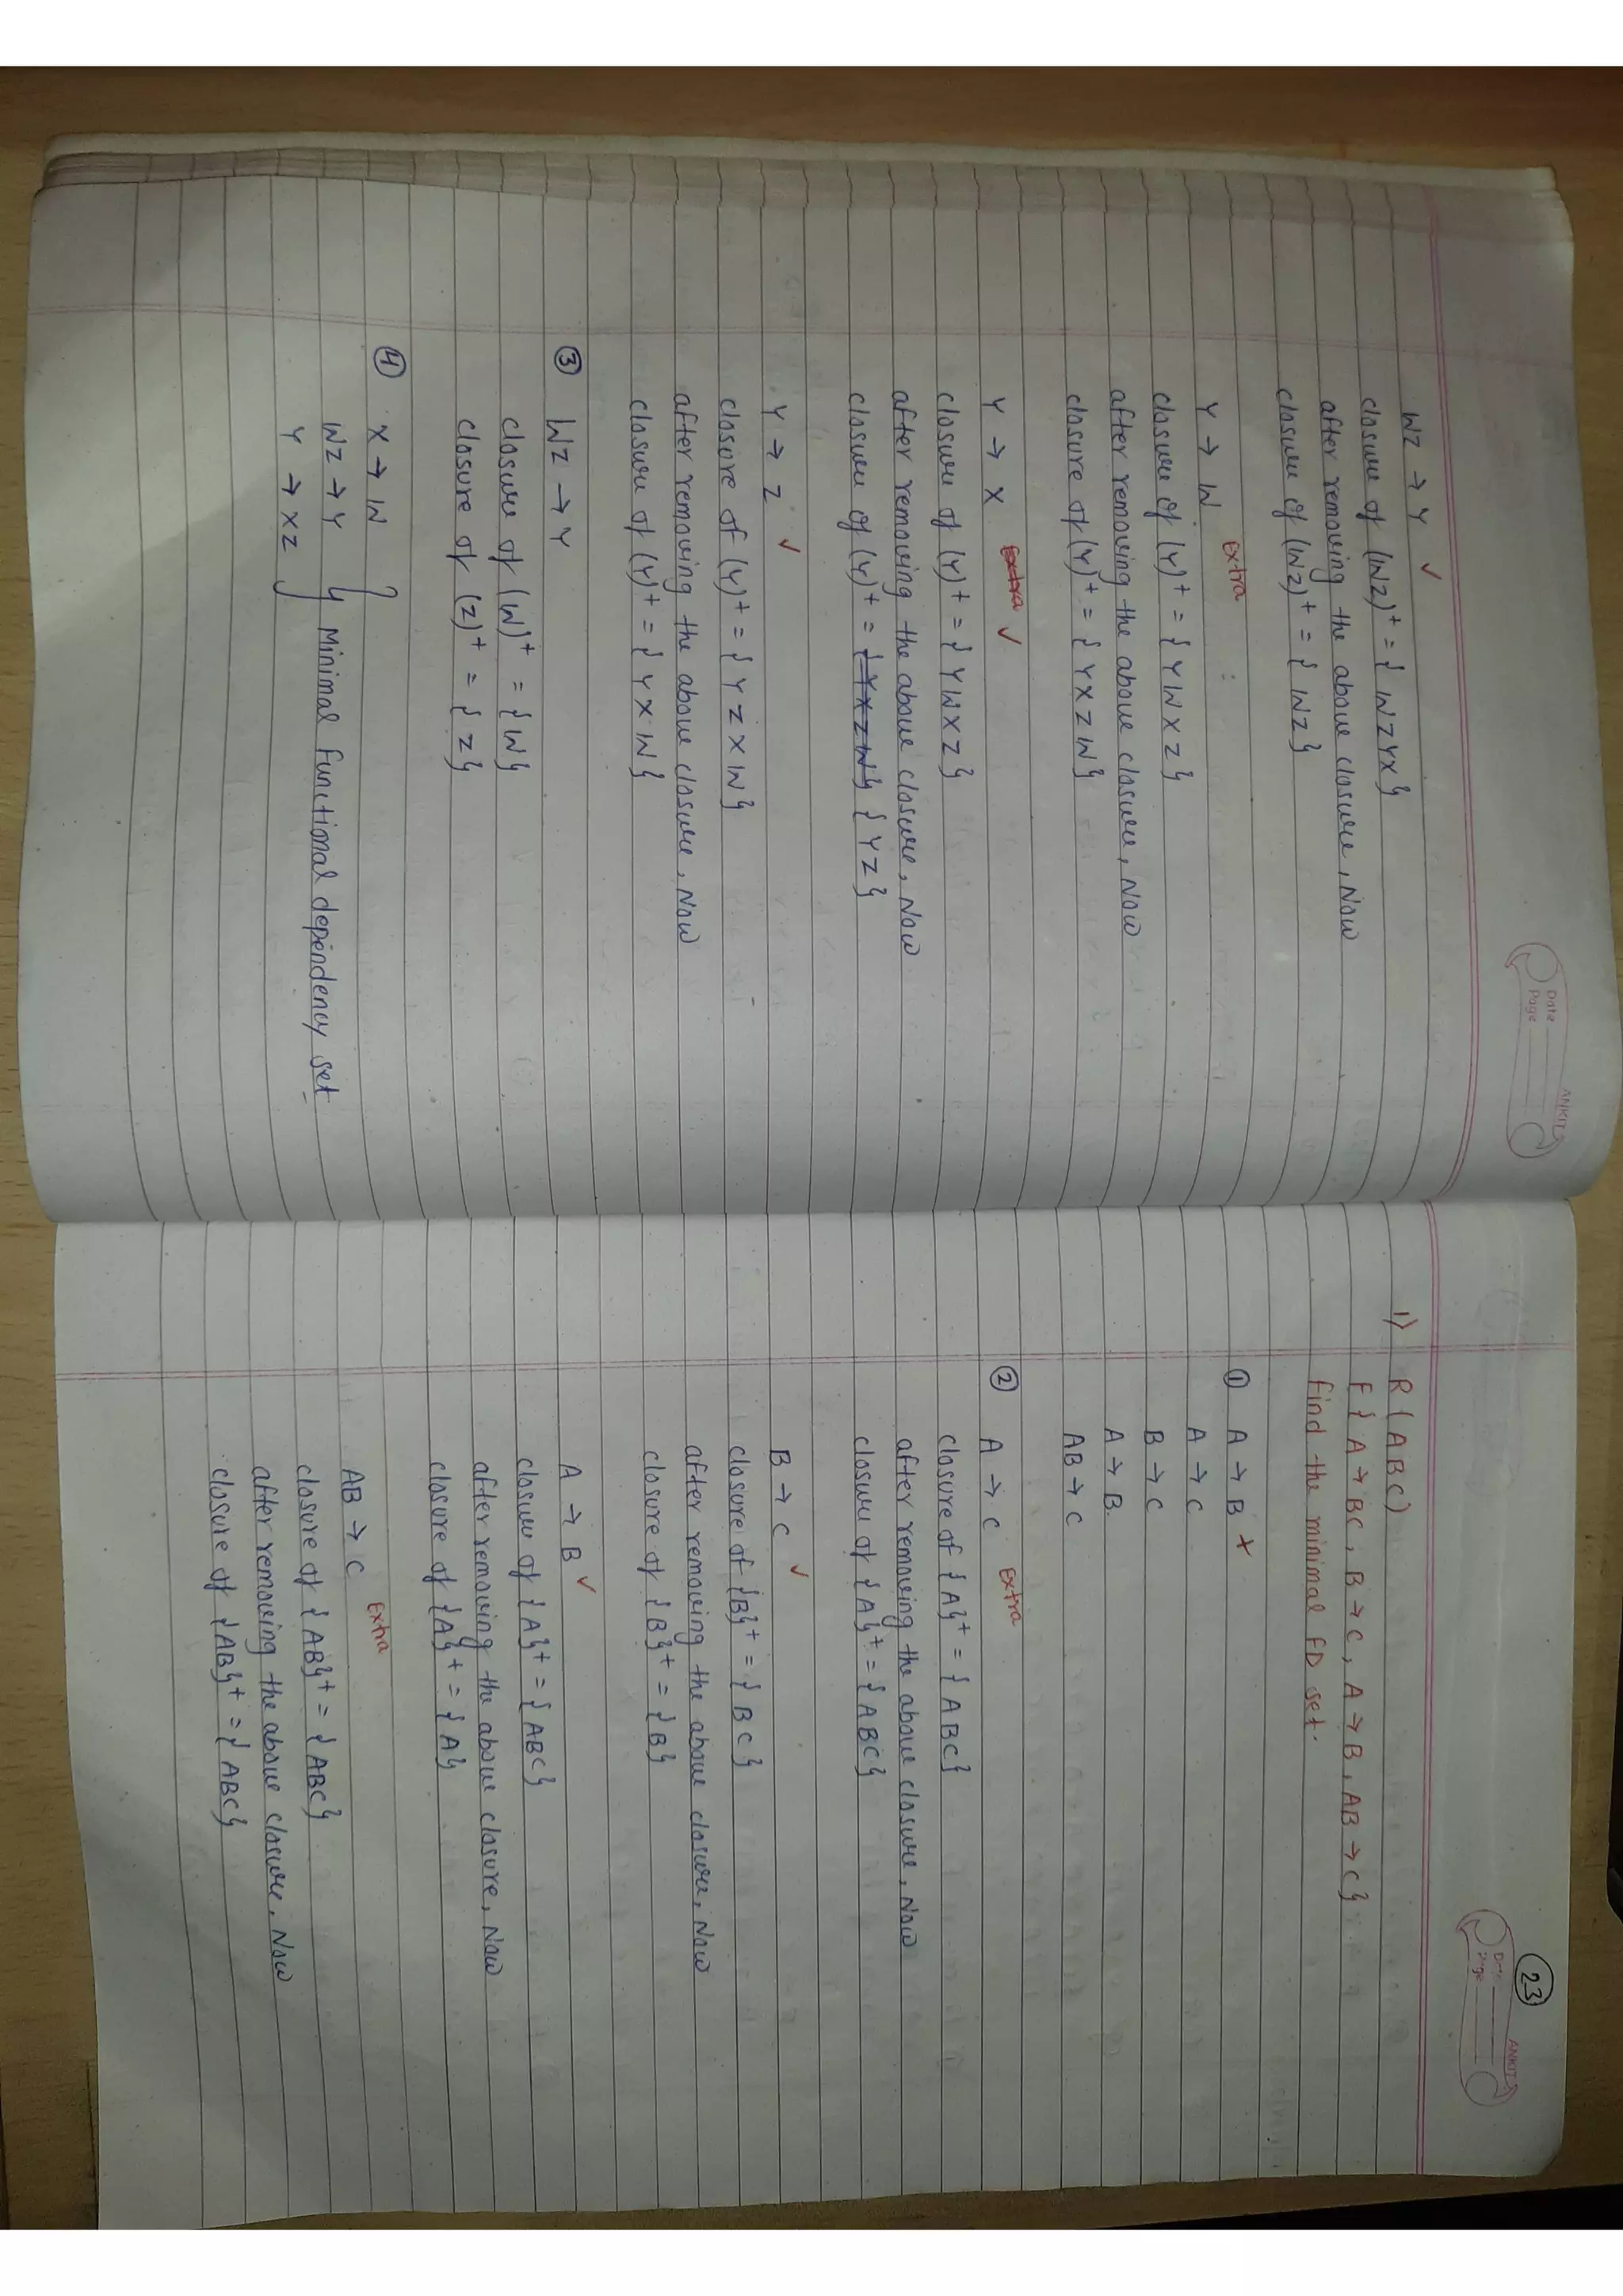 ANKIT
Date
Page
WZ → Y ✓
closure of (WZ)⁺ = { WZYX}
after removing the above closure, Now
closure of (WZ)⁺ = { WZ}
Y → W Extra
closure of (Y)⁺ = { YWXZ}
after removing the above closure, Now
closure of (Y)⁺ = { YXZW}
Y → X Extra ✓
closure of (Y)⁺ = { YWXZ}
after removing the above closure, Now
closure of (Y)⁺ = { YXZW} { YZ}
Y → Z ✓
closure of (Y)⁺ = { YZXW}
after removing the above closure, Now
closure of (Y)⁺ = { YXW}
③ WZ → Y
closure of (W)⁺ = {W}
closure of (Z)⁺ = { Z}
④ X → W
WZ → Y } Minimal functional dependency set
Y → XZ
23
ANKIT
Date
Page
1) R (ABC)
F { A → BC, B → C, A → B, AB → C}
find the minimal FD set.
① A → B ×
A → C
B → C
A → B
AB → C
② A → C Extra
closure of {A}⁺ = { ABC}
after removing the above closure, Now
closure of {A}⁺ = { ABC}
B → C ✓
closure of {B}⁺ = { BC}
after removing the above closure, Now
closure of {B}⁺ = {B}
A → B ✓
closure of {A}⁺ = {ABC}
after removing the above closure, Now
closure of {A}⁺ = {A}
AB → C Extra
closure of {AB}⁺ = {ABC}
after removing the above closure, Now
closure of {AB}⁺ = { ABC}